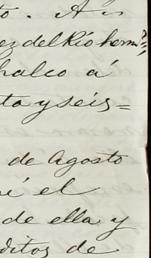 to. A
ez del Río herm
halco á
ta y seis=
de Agosto
el
de ella y
ditos de